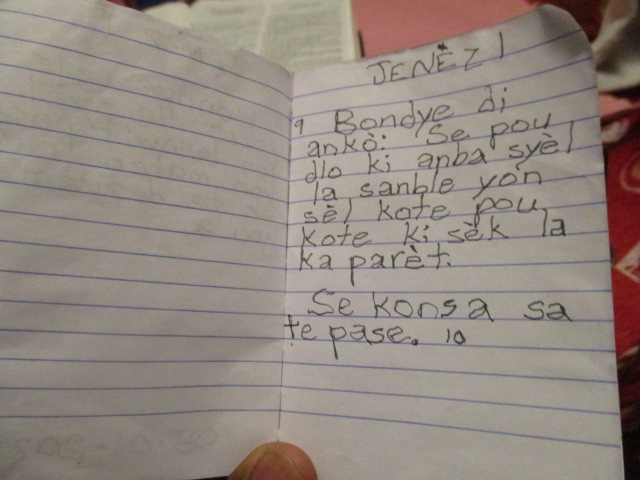 JENÈZ 1
9 Bondye di
ankò: Se pou
dlo ki anba syèl
la sanble yon
sèl kote pou
kote ki sèk la
ka parèt.
Se konsa sa
te pase. 10